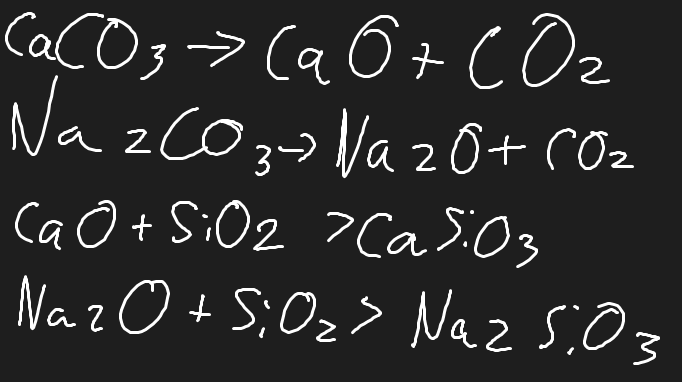 CaCO3 → CaO + CO2
Na2CO3 → Na2O + CO2
CaO + SiO2 > CaSiO3
Na2O + SiO2 > Na2SiO3